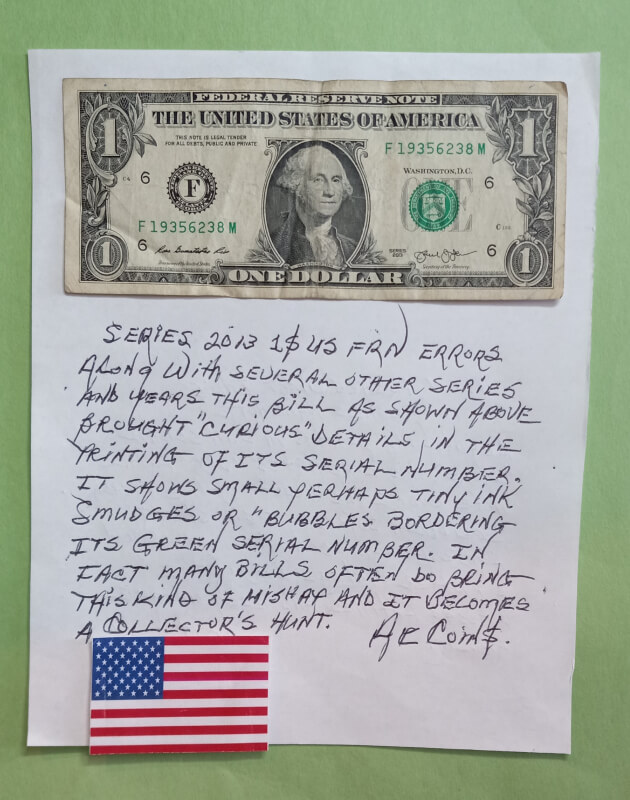 FEDERAL RESERVE NOTE
THE UNITED STATES OF AMERICA
THIS NOTE IS LEGAL TENDER
FOR ALL DEBTS, PUBLIC AND PRIVATE
F 19356238 M
WASHINGTON, D.C.
6
6
F
F 19356238 M
6
6
1
1
1
1
ONE
SERIES
2013
Secretary of the Treasury
ONE DOLLAR
SERIES 2013 1$ US FRN ERRORS
ALONG WITH SEVERAL OTHER SERIES
AND YEARS THIS BILL AS SHOWN ABOVE
BROUGHT "CURIOUS" DETAILS IN THE
PRINTING OF ITS SERIAL NUMBER.
IT SHOWS SMALL PERHAPS TINY INK
SMUDGES OR "BUBBLES BORDERING
ITS GREEN SERIAL NUMBER. IN
FACT MANY BILLS OFTEN DO BRING
THIS KIND OF MISHAP AND IT BECOMES
A COLLECTOR'S HUNT. AR COIN$.